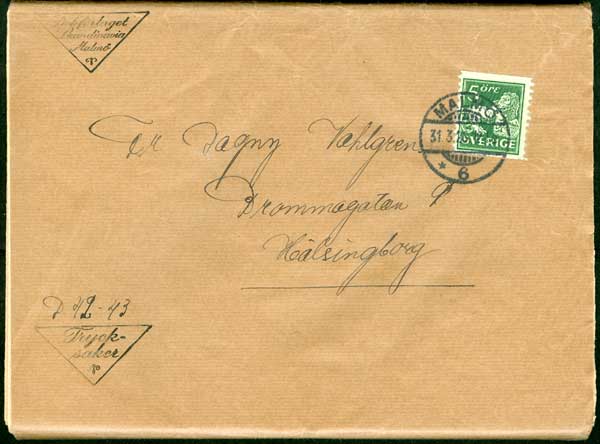 Bokförlaget
Skandinavia
Malmö
5 ÖRE
SVERIGE
MALMÖ
31.3
6
Fr Dagny Vahlgren
Drommagatan 9
Hälsingborg
D 42-43
Tryck-
saker